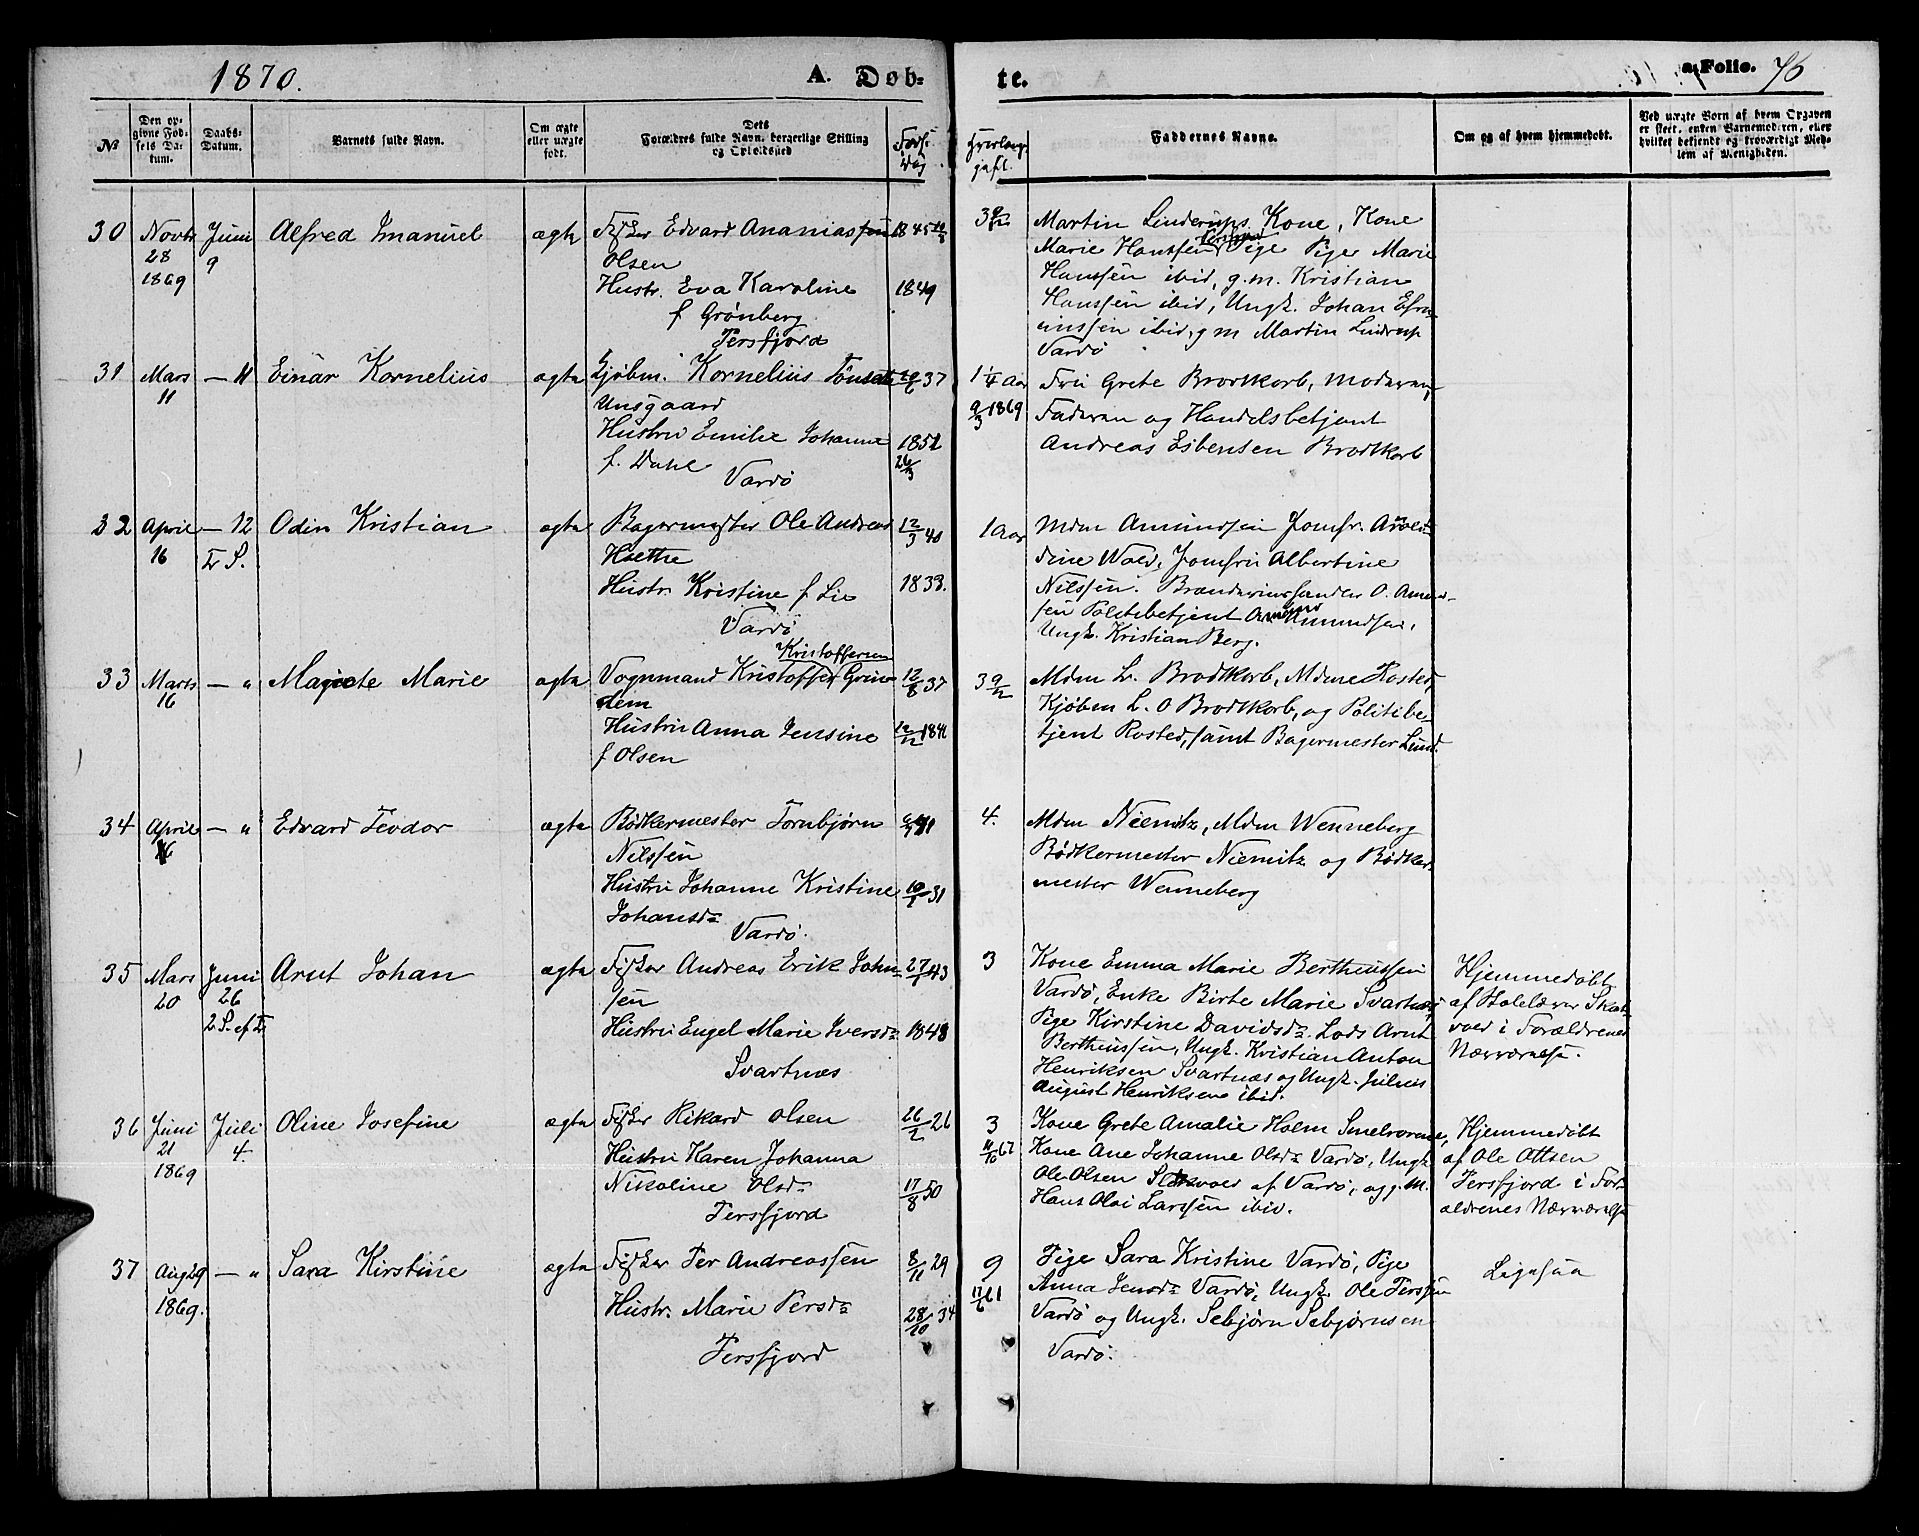 1870.
A. Dob-
te.
a Folio. 76
No
Den op-
givne Fød-
sels Da-
tum.
Daabs-
Datum.
Barnets fulde Navn.
Om ægte
eller uægte
født.
Dets
Forældres fulde Navn, borgerlige Stilling
og Opholdssted
Føds.
Dag
Faddernes Navne.
Om og af hvem hjemmedøbt.
Ved uægte Børn af hvem Opgaven
er skeet, enten Barnemoderen, eller
hvilket bekjendt og troværdigt Med-
lem af Menigheden.
30
Novbr
28
1869
Juni
9
Alfred Imanuel
ægte
Fisker Edvard Ananiassen
Olsen
Hustr. Eva Karoline
f Grønberg
Persfjord
1845
1849
3 9/12
Martin Linderups Kone, Kone
Marie Hanssen Persfjord Pige Pige Marie
Hanssen ibid, g.m. Kristian
Hanssen ibid, Ungk. Johan Efra-
imssen ibid, g m Martin Lindrup
Vardø
31
Mars
11
— 11
Einar Kornelius
ægte
Kjøbm. Kornelius
Unsgaard
Hustru Emilie Johanne
f. Dahl
Vardø
37
1851
26/3
1 1/4 Aar
9/3 1869
Frü Grete Brodtkorb, Moderen,
Faderen og Handelsbetjent
Andreas Esbensen Brodtkorb
32
April
16
— 12
Tr S.
Odin Kristian
ægte
Bagermester Ole Andreas
Hæthe
Hustr. Kristine f Lie
Vardø
12/3 40
1833.
1 Aar
Mdm Amundsen Jomfr.
dine Wold, Jomfru Albertine
Nilssen. Brændevinshandler O. Amund-
sen Politibetjent Amundsen,
Ungk. Kristian Berg.
33
Marts
16
— "
Magrete Marie
ægte
Kristoffersen
Vognmand Kristoffer Grin-
dem
Hustru Anna Jensine
f Olsen
12/8 37
12/12 1841
3 9/12
Mdm L. Brodtkorb, Mdme Rosted,
Kjøbm L. O Brodtkorb, og Politibe-
tjent Rosted, samt Bagermester Lund.
34
April
16
— "
Edvard Teodor
ægte
Bødkermester Tornbjørn
Nilssen
Hustru Johanne Kristine
Johansd=
Vardø.
31
4.
Mdm Niemitz, Mdm Wenneberg
Bødkermester Niemitz og Bødker-
mester Wenneberg
35
Mars
20
Juni
26
2 S. ef T
Arnt Johan
ægte
Fisker Andreas Erik John-
sen
Hustru Engel Marie Iversd=
Svartnæs
43
1848
3
Kone Emma Marie Bertheussen
Vardø, Enke Birte Marie Svartnæs,
Pige Kirstine Davidsd= Lods Arnt
Bertheussen, Ungk. Kristian Anton
Henriksen Svartnæs og Ungk. Julius
August Henriksen ibid.
Hjemmedøbt
af Skolelærer Skat-
vold i Forældrenes
Nærværelse.
36
Juni
21
1869
Juli
4.
Oline Josefine
ægte
Fisker Rikard Olsen
Hustru Karen Johanna
Nikoline Olsd=
Persfjord
26/2 26
17/8 50
3
11/10 67
Kone Grete Amalie Holm Smelroren,
Kone Ane Johanne Olsd= Vardø, Ungk
Ole Olsen af Vardø, og g. M.
Hans Olai Larssen ibid.
Hjemmedøbt
af Ole Ottsen
Persfjord i For-
ældrenes Nærværelse
37
Aug 29
1869.
— "
Sara Kirstine
ægte
Fisker Per Andreassen
Hustr. Marie Persd=
Persfjord
8/11 29
28/10 34
9
17/6 61
Pige Sara Kristine Vardø, Pige
Anna Jensd= Vardø, Ungk. Ole Perssen
Vardø og Ungk. Sebjørn Sebjørnsen
Vardø.
Ligesaa